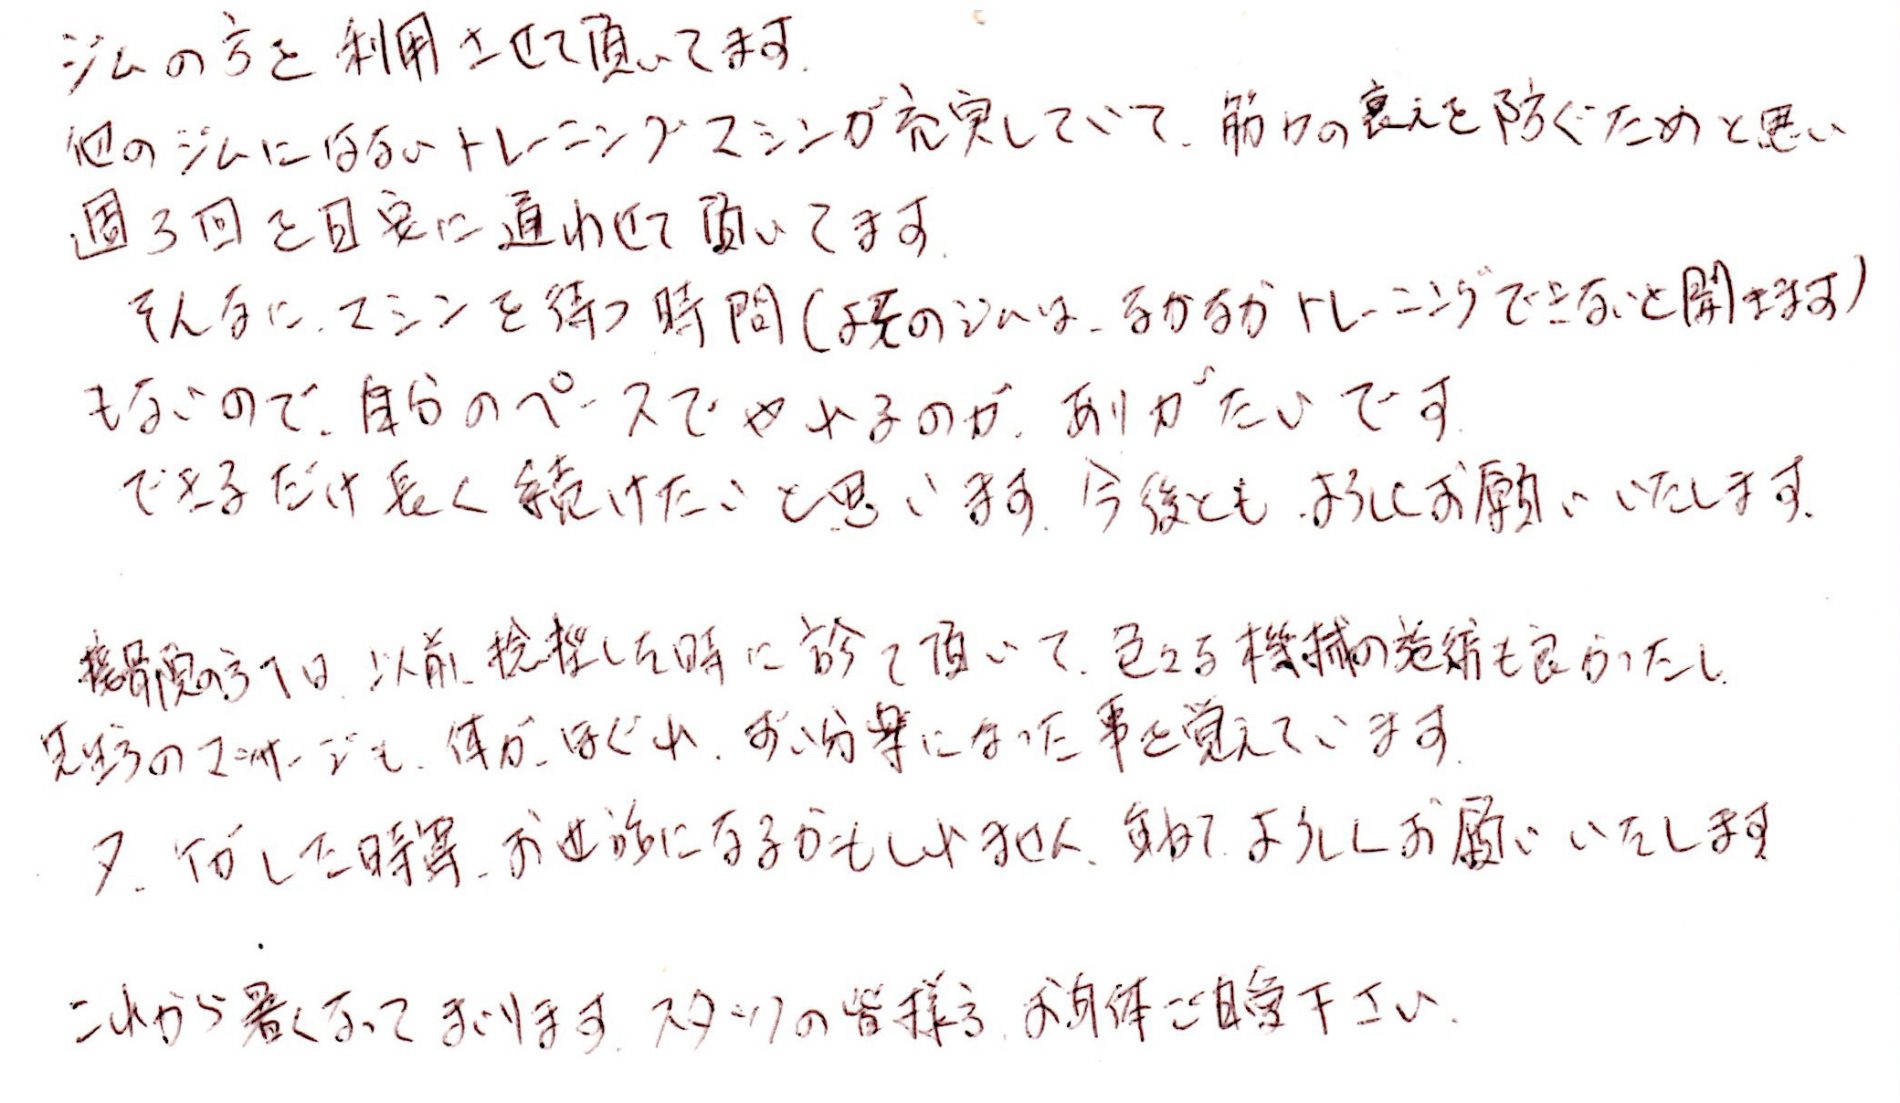 ジムの方を利用させて頂いてます.
他のジムにはないトレーニングマシンが充実していて、筋力の衰えを防ぐためと思い
週3回を目安に通わせて頂いてます.
そんなに、マシンを待つ時間(よそのジムは、なかなかトレーニングできないと聞きます)
もないので、自分のペースでやれるのが、ありがたいです.
できるだけ長く続けたいと思います. 今後とも、よろしくお願いいたします.
接骨院の方では、以前、捻挫した時に診て頂いて、色々な機械の施術も良かったし、
先生方のマッサージも、体が、ほぐれ、ずい分楽になった事を覚えています.
又、した時等、お世話になるかもしれません、重ねて、よろしくお願いいたします
これから暑くなってまいります. スタッフの皆様方、お身体ご自愛下さい.